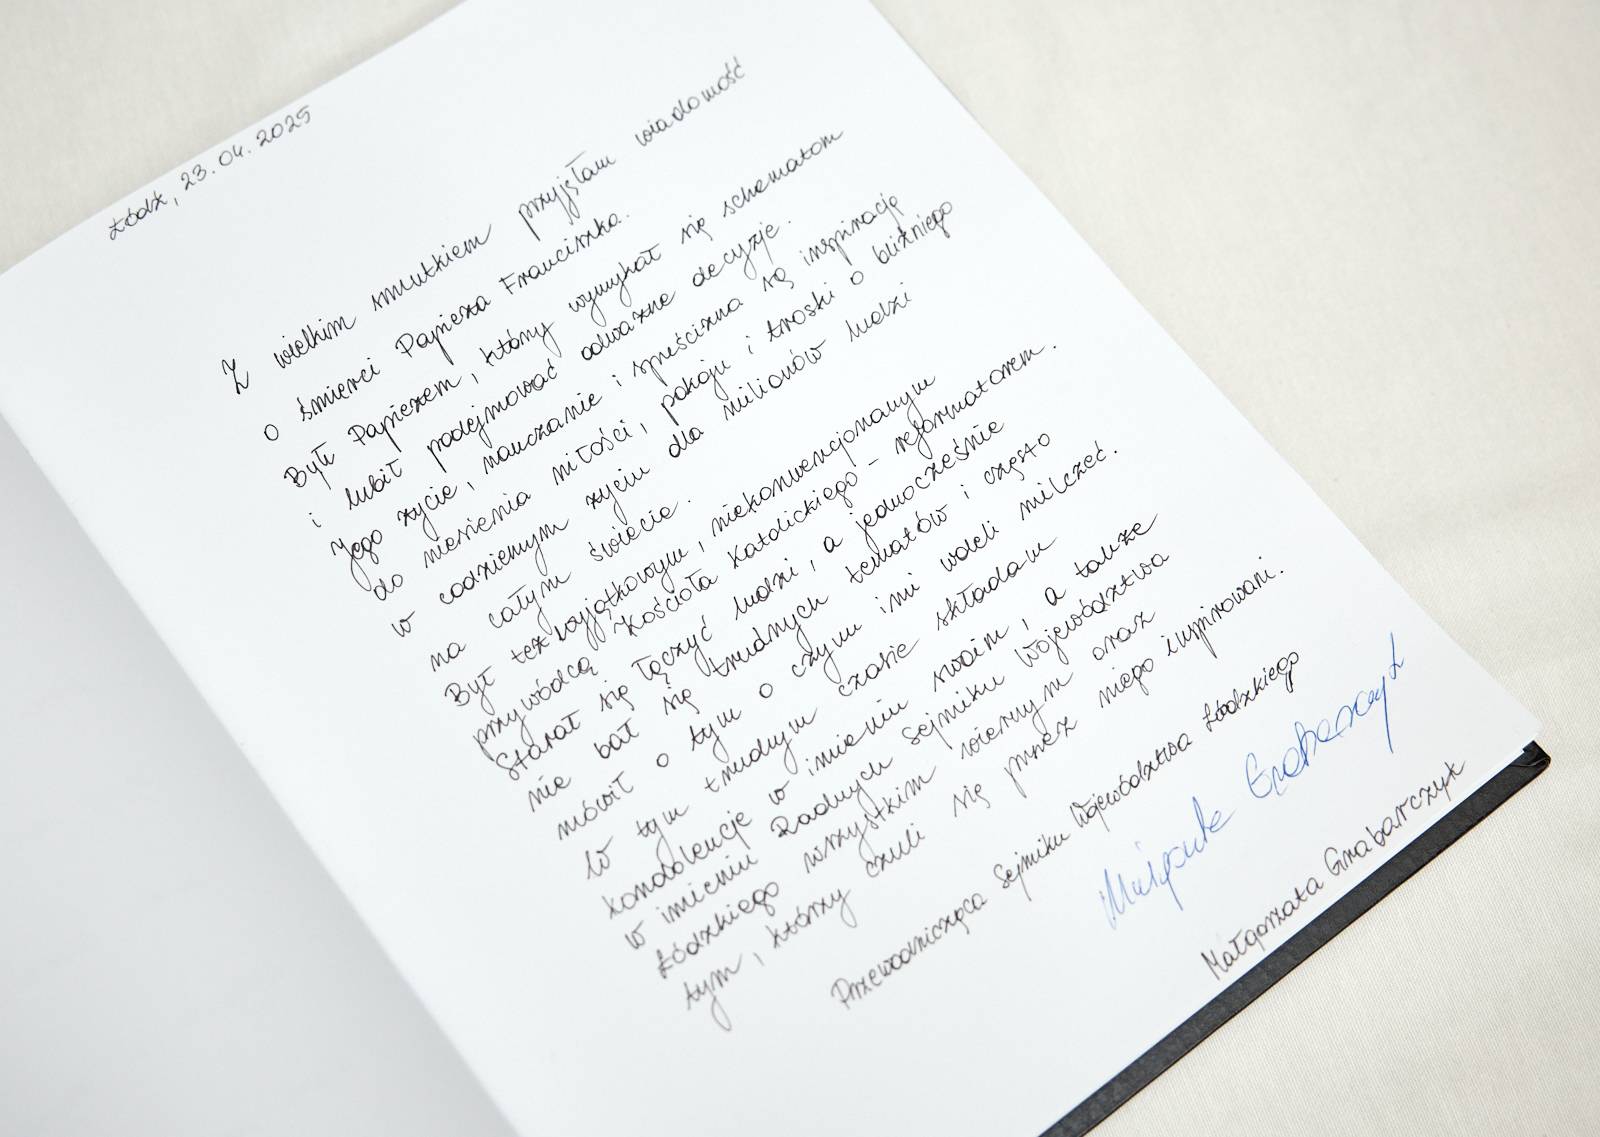 Łódź, 23.04.2025
Z wielkim smutkiem przyjęłam wiadomość
o śmierci Papieża Franciszka.
Był Papieżem, który wymykał się schematom
i lubił podejmować odważne decyzje.
Jego życie, nauczanie i spuścizna są inspiracją
do niesienia miłości, pokoju i troski o bliźniego
w codziennym życiu dla milionów ludzi
na całym świecie.
Był też wyjątkowym, niekonwencjonalnym
przywódcą Kościoła Katolickiego - reformatorem.
Starał się łączyć ludzi, a jednocześnie
nie bał się trudnych tematów i często
mówił o tym o czym inni woleli milczeć.
W tym trudnym czasie składam
kondolencje w imieniu swoim, a także
w imieniu Radnych Sejmiku Województwa
Łódzkiego wszystkim wiernym oraz
tym, którzy czuli się przez niego inspirowani.
Przewodnicząca Sejmiku Województwa Łódzkiego
Małgorzata Grabarczyk
Małgorzata Grabarczyk